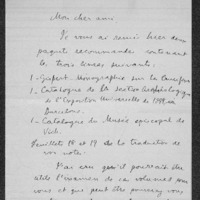 Mon cher ami
Je vous ai remis hier un
paquet recommandé contenant
les trois livres suivants:
1 - Monographie sur la
1 - Catalogue de la section
de l'Exposition Universelle de
1 - Catalogue du Musée épiscopal de
Vich.
Feuillets 18 et 19 de la traduction de
vos notes.
J'ai cru qu'il pourrait être
utile l'examen de ces volumes pour
vous et que peut être pourrez vous